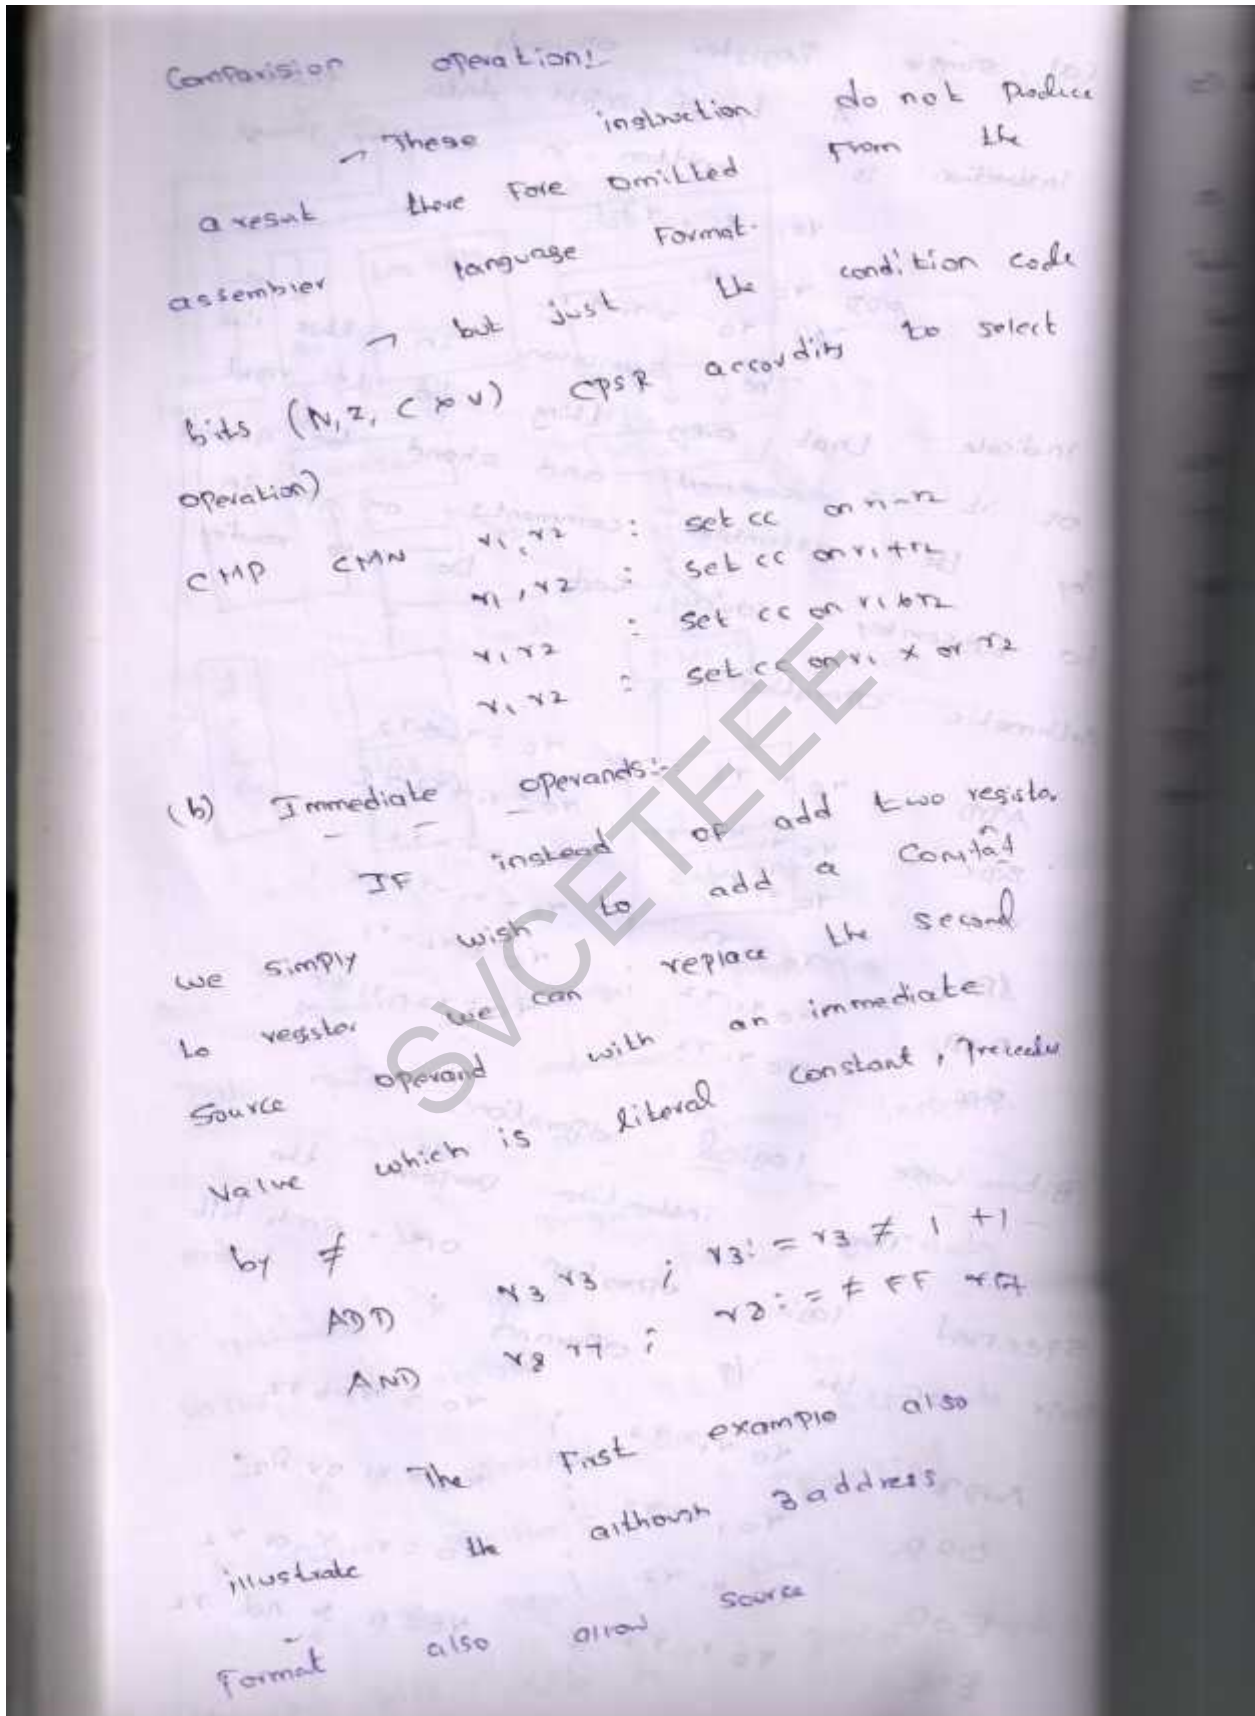 Comparision operation:
These instruction do not produce
a result there fore omitted from the
assembler language Format.
but just the condition code
bits (N, Z, C & V) CPSR according to select
operation)
CMP CMN r1, r2 : set cc on r1-r2
r1, r2 : set cc on r1+r2
r1 r2 : set cc on r1 & r2
r1 r2 : set cc on r1 x or r2
(b) Immediate operands:-
IF instead of add two register
we simply wish to add a Constat
to register we can replace the second
Source operand with an immediate
value which is literal constant,
by ≠
ADD : r3 r3 ; r3: = r3 ≠ 1 +1
AND r8 r7 ; r8: = ≠ FF
The First example also
illustrate the although 3 address
Format also allow source
SVCETEEE